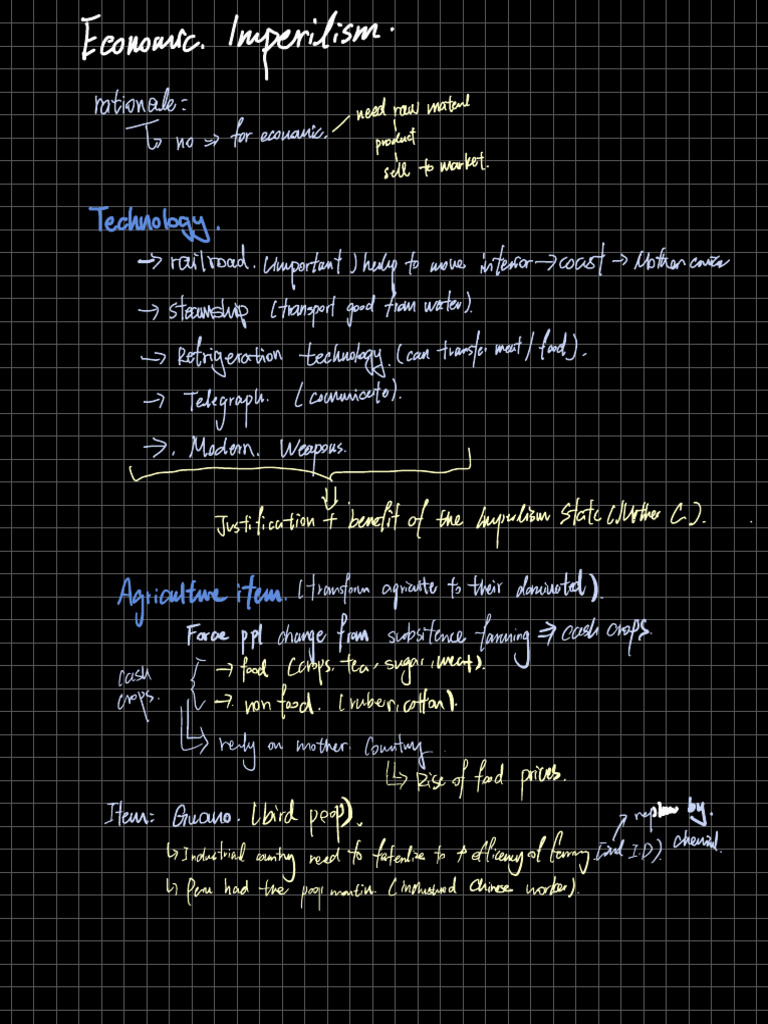 Economic. Imperilism.
rationale:
↳ no => for economic.
need raw material
product
sell to market.
Technology.
→ railroad. (important) help to move interior → coast → Mother
→ steamship (transport good from water).
→ Refrigeration technology. (can transfer meat / food).
→ Telegraph. (comunicate).
→. Modern. Weapons.
Justification + benefit of the Imperilism State (Mother C.).
Agriculture item. (transform to their dominated).
Force ppl change from subsitence farming ⇒ cash crops.
cash crops.
→ food (crops, tea, sugar, meat).
→ non food. (rubber, cotton).
↳ rely on mother. Country
↳ Rise of food prices.
Item: Guano. (bird poop).
by. chemical.
↳ Industrial country need to to ↑ efficency of farming (2nd I.D)
↳ Peru had the poop Chinese worker).